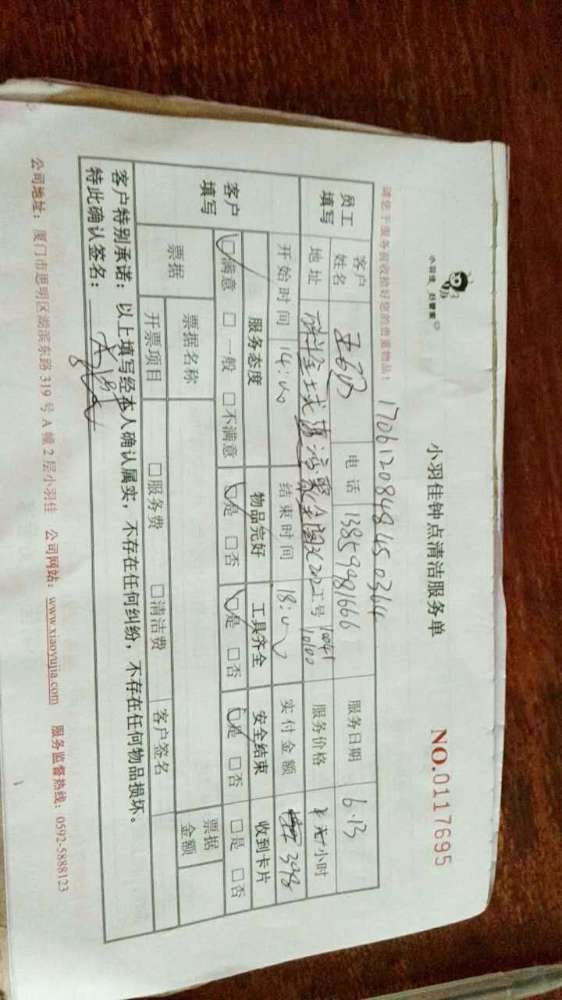 小羽佳 好管家
小羽佳钟点清洁服务单
NO.0117695
请您于服务前收拾好您的贵重物品!
1706120848450364
员工填写
客户姓名 电话 13859981666 服务日期 6.13
地址 工号 服务价格 小时
开始时间 14:00 结束时间 18:00 实付金额 398
客户填写
服务态度 物品完好 工具齐全 安全结束 收到卡片
□满意 □一般 □不满意 □是 □否 □是 □否 □是 □否 □是 □否
票据 票据名称 票据金额
开票项目 □服务费 □清洁费 客户签名
客户特别承诺:以上填写经本人确认属实,不存在任何纠纷,不存在任何物品损坏。
特此确认签名:
公司地址:厦门市思明区湖滨东路319号A幢2层小羽佳 公司网站:www.xiaoyujia.com 服务监督热线:0592-5888123